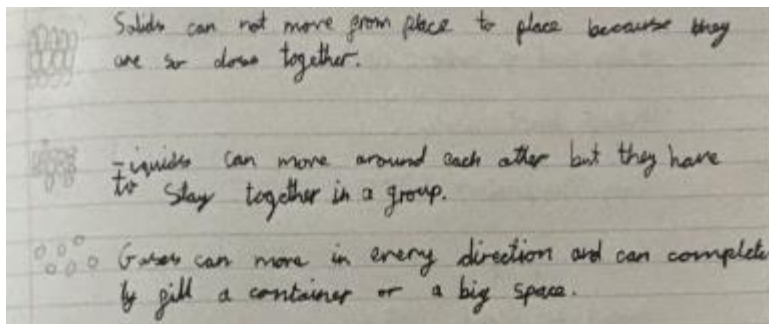 Solids can not move from place to place because they
are so close together.
Liquids can move around each other but they have
to stay together in a group.
Gases can move in every direction and can complete
ly fill a container or a big space.